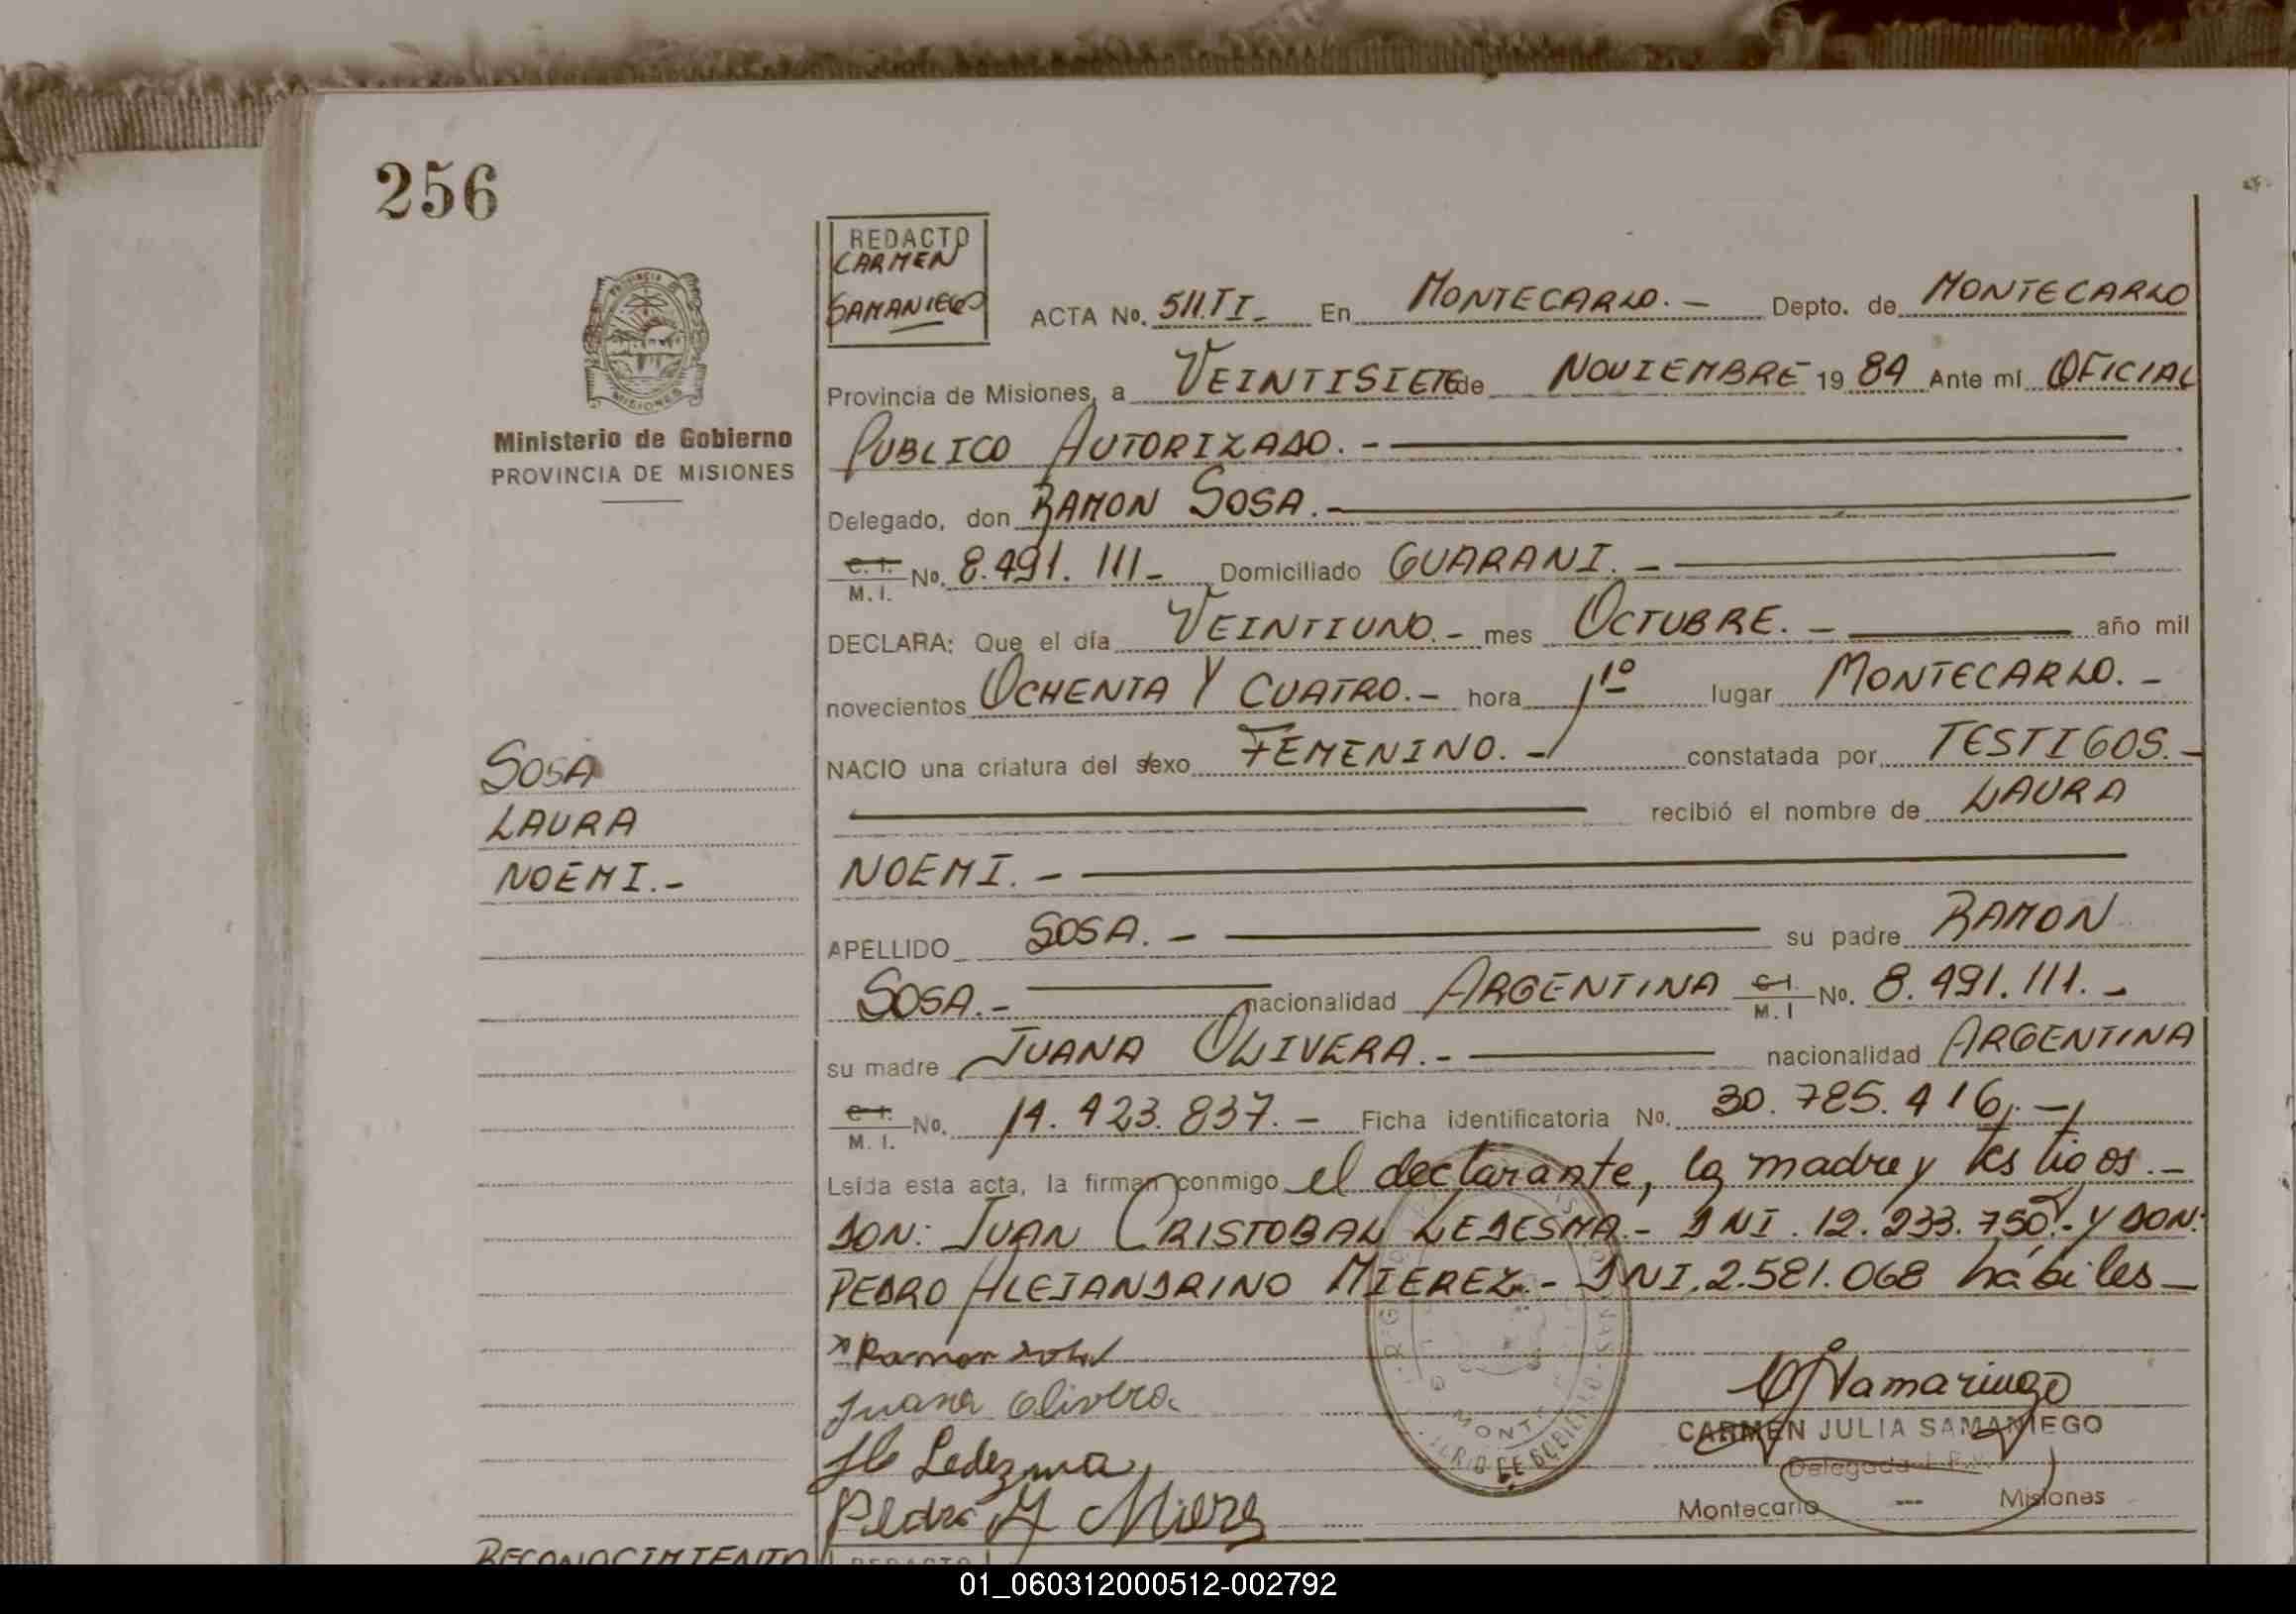 256
REDACTO
CARMEN
SAMANIEGO
ACTA No. 511.TI- En MONTECARLO.- Depto. de MONTECARLO
Provincia de Misiones, a VEINTISIETE de NOVIEMBRE 1984 Ante mí OFICIAL
PUBLICO AUTORIZADO.-
Delegado, don RAMON SOSA.-
C. I. No. 8.491.111- Domiciliado GUARANI.-
M. I.
DECLARA: Que el día VEINTIUNO.- mes OCTUBRE.- año mil
novecientos OCHENTA Y CUATRO.- hora 1º lugar MONTECARLO.-
NACIO una criatura del sexo FEMENINO.- constatada por TESTIGOS.-
recibió el nombre de LAURA
NOEMI.-
APELLIDO SOSA.- su padre RAMON
SOSA.- nacionalidad ARGENTINA C.I. No. 8.491.111.-
M. I
su madre JUANA OLIVERA.- nacionalidad ARGENTINA
C. I. No. 14.423.837.- Ficha identificatoria No. 30.785.416.-
M. I.
Leída esta acta, la firman conmigo el declarante, la madre y testigos.-
DON: JUAN CRISTOBAL LEDESMA.- DNI. 12.233.750.- Y DON:
PEDRO ALEJANDRINO MIEREZ.- DNI. 2.581.068 hábiles-
Ramon sosa
Juana Olivera
Ledezma
Pedro A Mierez
CARMEN JULIA SAMANIEGO
Delegada
Montecarlo --- Misiones
MONTE
PROVINCIA
MISIONES
Ministerio de Gobierno
PROVINCIA DE MISIONES
SOSA
LAURA
NOEMI.-
RECONOCIMIENTO
REDACTO
01_060312000512-002792